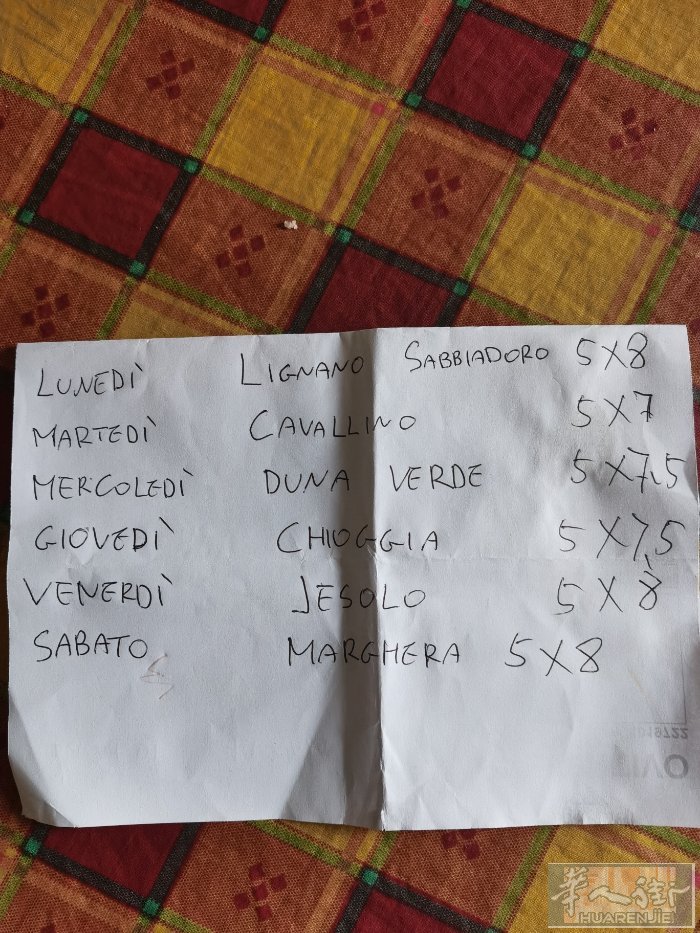 LUNEDÌ LIGNANO SABBIADORO 5X8
MARTEDÌ CAVALLINO 5X7
MERCOLEDÌ DUNA VERDE 5X7,5
GIOVEDÌ CHIOGGIA 5X7,5
VENERDÌ JESOLO 5X8
SABATO MARGHERA 5X8
华人街
HUARENJIE